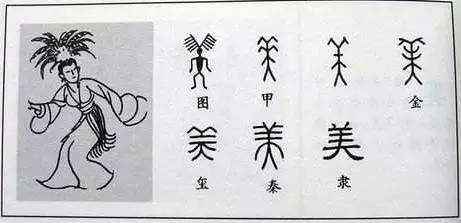 图 甲 金
美 美
玺 秦 隶